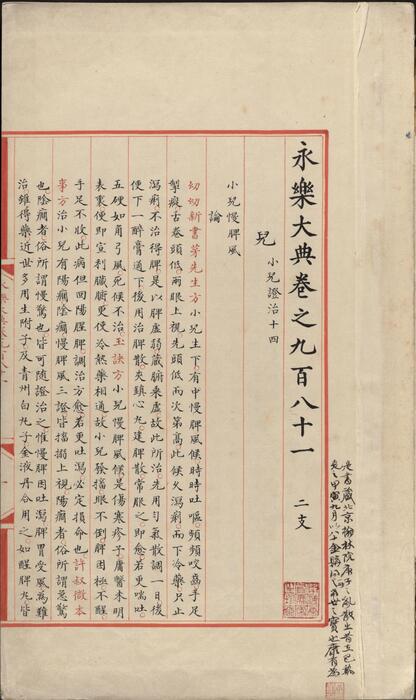 永樂大典卷之九百八十一 二支
兒 小兒證治十四
小兒慢脾風
論
幼幼新書茅先生方小兒生下有中慢脾風候時時吐嘔頻頻咬齒手足
掣瘲舌卷頭低兩眼上視先頭低而次第高此候久瀉痢而下冷藥只止
瀉痢不治得脾是以脾虛弱蔵腑乘虛故此所治先用勻氣散調一日後
便下一醉膏通下後用治脾散夾鎮心九建脾散常服之即愈若更喘吐
五硬如角弓風死候不治玉訣方小兒慢脾風候是傷寒疹子膚瞖未明
表裏便即宣利臓腑更使冷熱藥相通故小兒發搐眼不倒脾困極不醒
手足不收此病但回陽醒脾調治方愈若更吐瀉必定損命也許叔微本
事方治小兒有陽癎陰癎慢脾風三證皆搐搦上視陽癎者俗所謂急驚
也陰癎者俗所謂慢驚也皆可随證治之惟慢脾因吐瀉脾胃受風為難
治雖得藥近世多用生附子及青州白九子金液丹合用之如醒脾九皆
是書藏北京翰林院